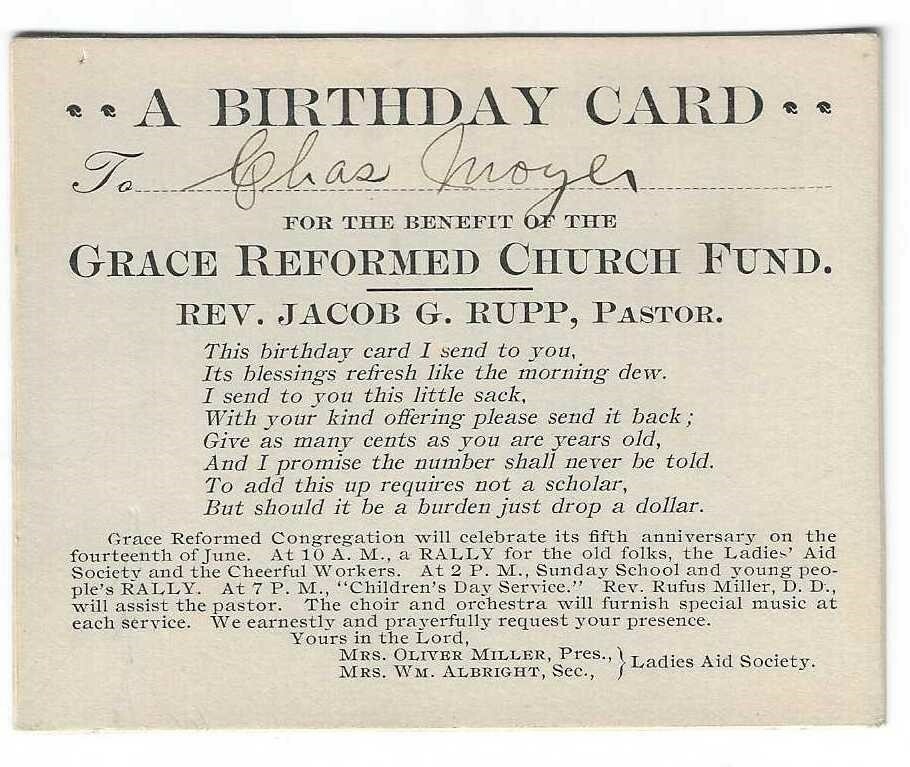 A BIRTHDAY CARD
To Chas Moyer
FOR THE BENEFIT OF THE
GRACE REFORMED CHURCH FUND.
REV. JACOB G. RUPP, PASTOR.
This birthday card I send to you,
Its blessings refresh like the morning dew.
I send to you this little sack,
With your kind offering please send it back;
Give as many cents as you are years old,
And I promise the number shall never be told.
To add this up requires not a scholar,
But should it be a burden just drop a dollar.
Grace Reformed Congregation will celebrate its fifth anniversary on the
fourteenth of June. At 10 A. M., a RALLY for the old folks, the Ladies' Aid
Society and the Cheerful Workers. At 2 P. M., Sunday School and young peo-
ple's RALLY. At 7 P. M., "Children's Day Service." Rev. Rufus Miller, D. D.,
will assist the pastor. The choir and orchestra will furnish special music at
each service. We earnestly and prayerfully request your presence.
Yours in the Lord,
MRS. OLIVER MILLER, Pres.,
MRS. WM. ALBRIGHT, Sec.,
} Ladies Aid Society.